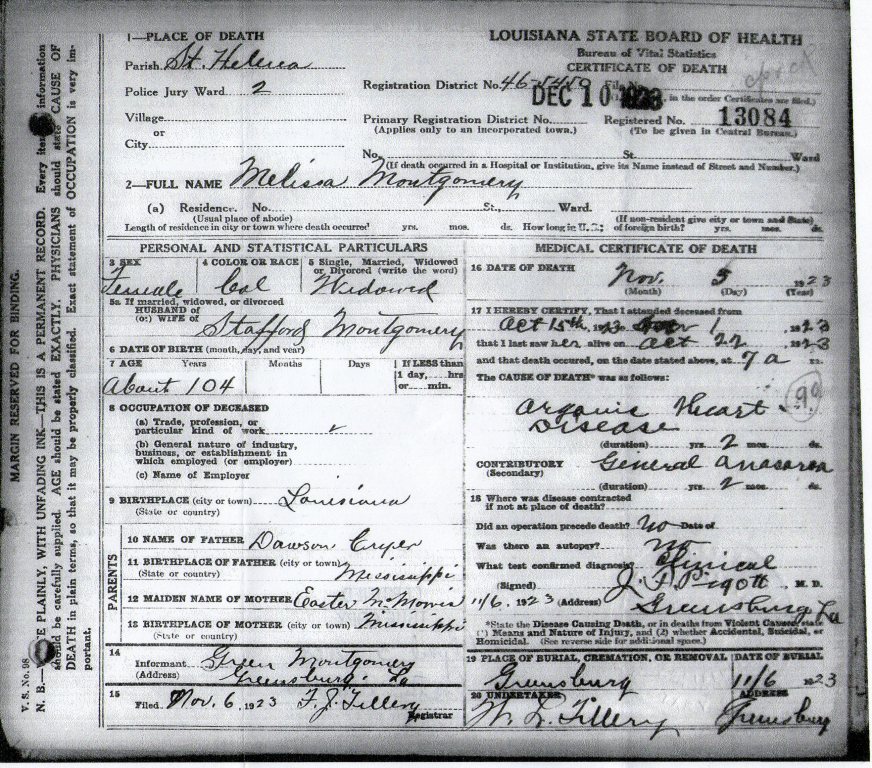 MARGIN RESERVED FOR BINDING.
V. S. No. 98
N. B.— PLAINLY, WITH UNFADING INK—THIS IS A PERMANENT RECORD. Every item information
should be carefully supplied. AGE should be stated EXACTLY. PHYSICIANS should state CAUSE OF
DEATH in plain terms, so that it may be properly classified. Exact statement of OCCUPATION is very im-
portant.
1—PLACE OF DEATH
Parish St. Helena
Police Jury Ward 2
Village
or
City
LOUISIANA STATE BOARD OF HEALTH
Bureau of Vital Statistics
CERTIFICATE OF DEATH
Registration District No. 46-
DEC 10 1923
in the order Certificates are filed.)
Primary Registration District No.
(Applies only to an incorporated town.)
Registered No. 13084
(To be given in Central Bureau.)
No. St. Ward
(If death occurred in a Hospital or Institution, give its Name instead of Street and Number.)
2—FULL NAME Melissa Montgomery
(a) Residence. No. St., Ward.
(Usual place of abode) (If non-resident give city or town and State)
Length of residence in city or town where death occurred yrs. mos. ds. How long in U. S.; of foreign birth? yrs. mos. ds.
PERSONAL AND STATISTICAL PARTICULARS
3 SEX
Female
4 COLOR OR RACE
Col
5 Single, Married, Widowed
or Divorced (write the word)
Widowed
5a If married, widowed, or divorced
HUSBAND of
(or) WIFE of
Stafford Montgomery
6 DATE OF BIRTH (month, day, and year)
7 AGE Years Months Days If LESS than
1 day, hrs
or min.
About 104
8 OCCUPATION OF DECEASED
(a) Trade, profession, or
particular kind of work
(b) General nature of industry,
business, or establishment in
which employed (or employer)
(c) Name of Employer
9 BIRTHPLACE (city or town) Louisiana
(State or country)
PARENTS
10 NAME OF FATHER Dawson
11 BIRTHPLACE OF FATHER (city or town)
(State or country) Mississippi
12 MAIDEN NAME OF MOTHER Easter McMorris
13 BIRTHPLACE OF MOTHER (city or town) Mississippi
(State or country)
14
Informant Green Montgomery
(Address) Greensburg La
15
Filed Nov. 6, 1923 F. J. Tillery
Registrar
MEDICAL CERTIFICATE OF DEATH
16 DATE OF DEATH Nov. 5 1923
(Month) (Day) (Year)
17 I HEREBY CERTIFY, That I attended deceased from
Oct 15th, 1923 1, 1923
that I last saw her alive on Oct 22, 1923
and that death occured, on the date stated above, at 7 a m.
The CAUSE OF DEATH* was as follows:
Organic Heart
Disease
(duration) yrs. 2 mos. ds.
CONTRIBUTORY General anasarca
(Secondary)
(duration) yrs. 2 mos. ds.
18 Where was disease contracted
if not at place of death?
Did an operation precede death? No Date of
Was there an autopsy? No
What test confirmed diagnosis? Clinical
(Signed) M. D.
11/6, 1923 (Address) Greensburg La
*State the Disease Causing Death, or in deaths from Violent Causes, state
(1) Means and Nature of Injury, and (2) whether Accidental, Suicidal, or
Homicidal. (See reverse side for additional space.)
19 PLACE OF BURIAL, CREMATION, OR REMOVAL DATE OF BURIAL
Greensburg 11/6 1923
20 UNDERTAKER ADDRESS
W. L. Tillery Greensburg